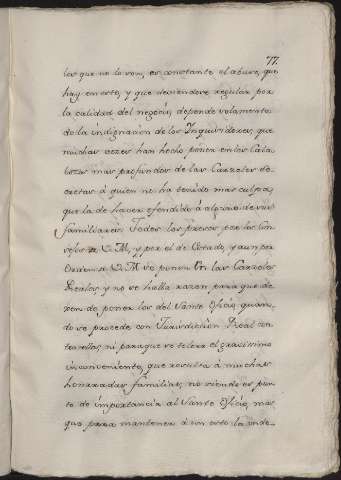 77.
los que no lo son, es constante el abuso, que
hay en esto, y que deviendose regular por
la calidad del negocio, depende solamente
de la indignacion de los Inquisidores, que
muchas vezes han hecho poner en los Cala-
bozos mas profundos de las Carzeles se-
cretas à quien no ha tenido mas culpa,
que la de haver ofendido à alguno de sus
familiares. Todos los presos por los Con-
sejos de V. M, y por el de Estado, y aun por
Ordenes de V. M se ponen en las Carzeles
Reales, y no se halla razon para que de-
xen de poner los del Santo Oficio, quan-
do se procede con Jurisdicion Real con-
tra ellos, ni para que se tolere el gravissimo
inconveniente, que resulta à muchas
honrradas familias, no siendo es pun-
to de importancia al Santo Oficio, mas
que para mantener à un esto la inde-